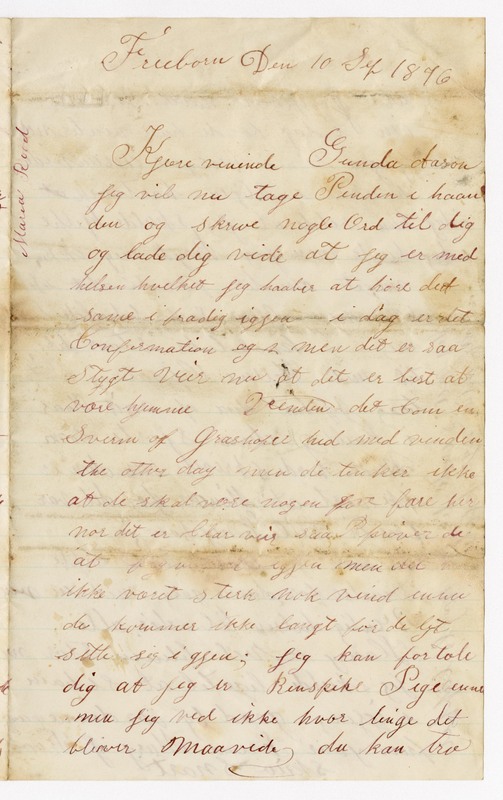 Freeborn Den 10 Sep 1876
Kjære veninde Gunda Aason
jeg vil nu tage Penden i haan
den og skrive nogle Ord til dig
og lade dig vide at jeg er med
helsen hvilket jeg haaber at høre det
same i fra dig iggen i dag er det
Confirmation og men det er saa
Stygt Veir nu at det er best at
være hjemme det Com en
Sverm of Grashoper hid med vinden
the other day men de tenker ikke
at de skal være nogen fare her
nor det er Clar veir saa Prøver de
at iggen men det
ikke været sterk nok vind ennu
de kommer ikke langt før de lyt
sette sig i ggen; jeg kan fortele
dig at jeg er Pige ennu
men jeg ved ikke hvor linge det
bliver Maavide du kan tro
Maria